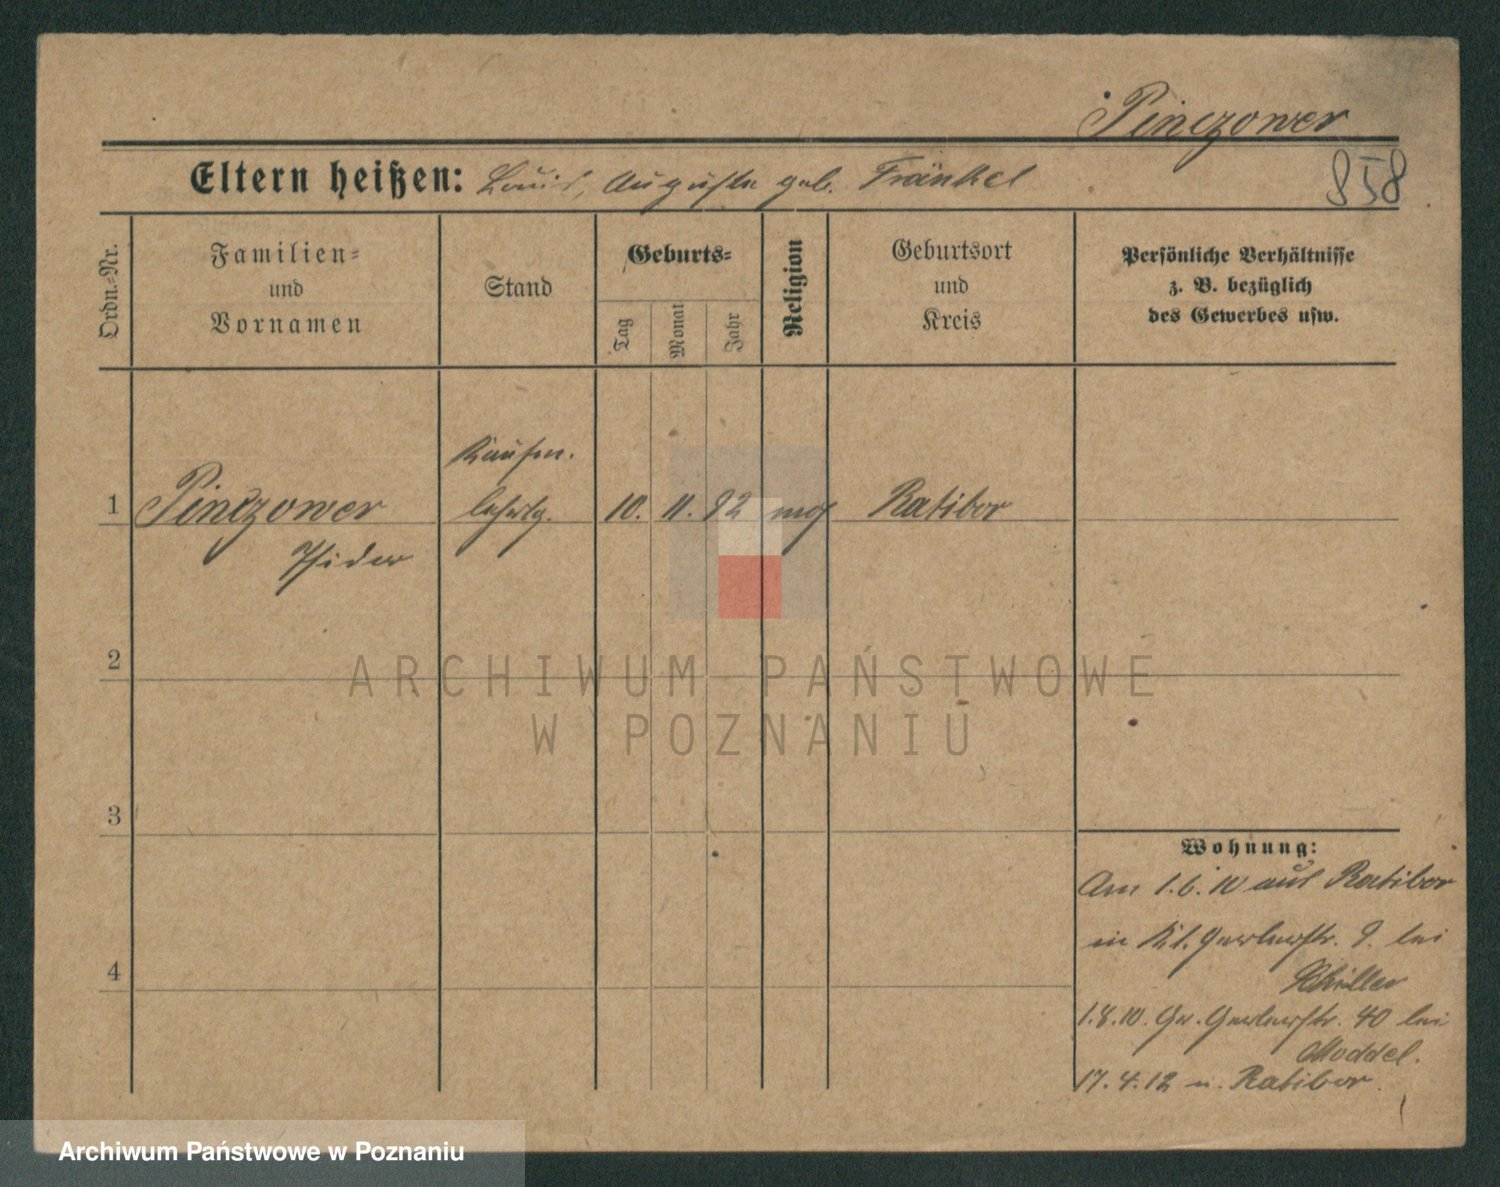 Pinczower
858
Eltern heißen: Louis, Auguste geb. Fränkel
Ordn.-Nr.
Familien-
und
Vornamen
Stand
Geburts-
Tag
Monat
Jahr
Religion
Geburtsort
und
Kreis
Persönliche Verhältnisse
z. B. bezüglich
des Gewerbes usw.
Kaufm.
1 Pinczower lehrlg. 10. 11. 92 mos Ratibor
Isidor
2
3
4
Wohnung:
Am 1.6.10 aus Ratibor
in Kl. Gerberstr. 9. bei
Schüller
1.8.10. Gr. Gerberstr. 40 bei
Moddel.
17.4.12 n. Ratibor.
ARCHIWUM PAŃSTWOWE
W POZNANIU
Archiwum Państwowe w Poznaniu